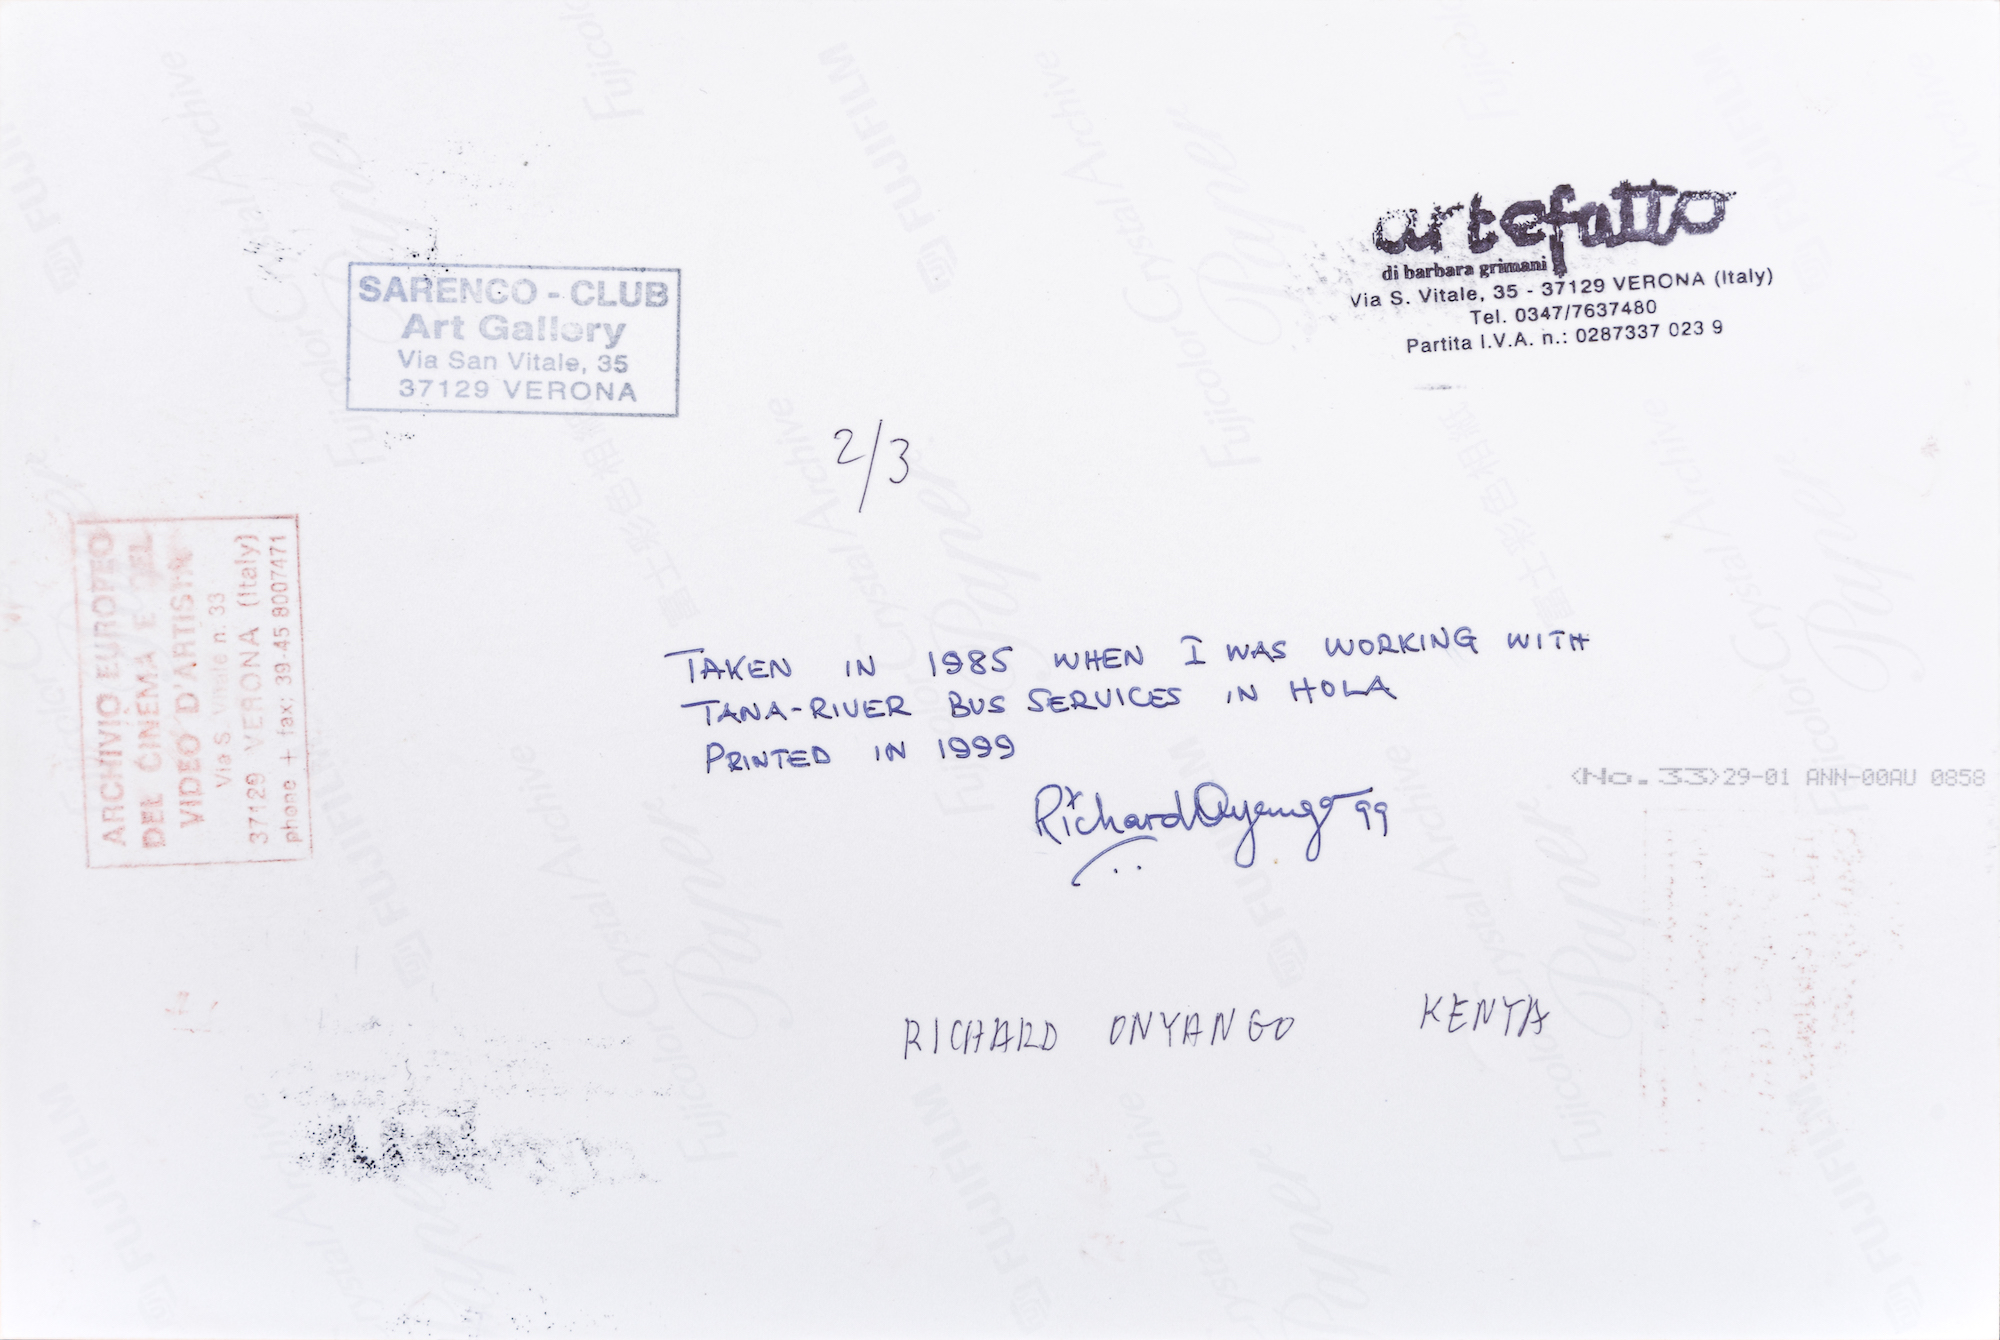 SARENCO - CLUB
Art Gallery
Via San Vitale, 35
37129 VERONA
artefatto
di barbara grimani
Via S. Vitale, 35 - 37129 VERONA (Italy)
Tel. 0347/7637480
Partita I.V.A. n.: 0287337 023 9
2/3
ARCHIVIO EUROPEO
DEL CINEMA E DEL
VIDEO D'ARTISTA
Via S. Vitale n. 33
37129 VERONA (Italy)
phone + fax: 39-45 8007471
TAKEN IN 1985 WHEN I WAS WORKING WITH
TANA-RIVER BUS SERVICES IN HOLA
PRINTED IN 1999
Richard Onyango 99
<No. 33>29-01 ANN-00AU 0858
RICHARD ONYANGO KENYA
FUJIFILM
Fujicolor Crystal Archive
Paper